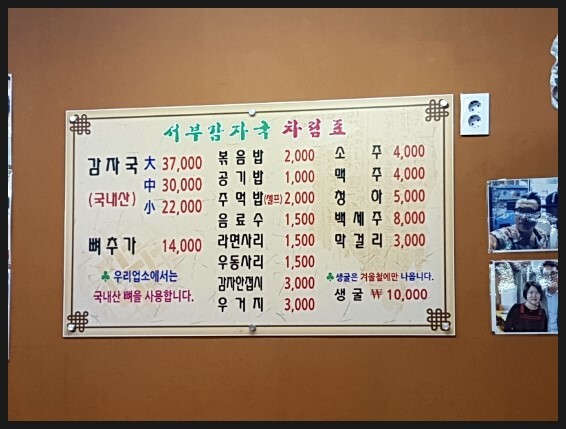 서부감자국 차림표
감자국 大 37,000
(국내산) 中 30,000
小 22,000
뼈추가 14,000
♣ 우리업소에서는
국내산 뼈을 사용합니다.
볶음밥 2,000
공기밥 1,000
주먹밥(셀프) 2,000
음료수 1,500
라면사리 1,500
우동사리 1,500
감자한접시 3,000
우거지 3,000
소주 4,000
맥주 4,000
청하 5,000
백세주 8,000
막걸리 3,000
♣생굴은 겨울철에만 나옵니다.
생굴 ₩10,000